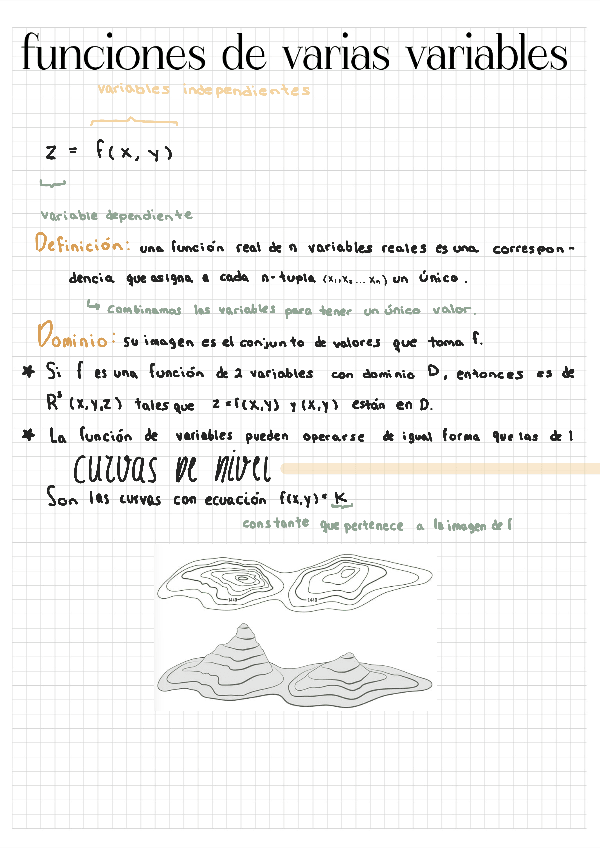 funciones de varias variables
variables independientes
z = f(x, y)
variable dependiente
Definición: una función real de n variables reales es una correspon-
dencia que asigna a cada n-tupla (x₁,x₂...xₙ) un único.
↳ combinamos las variables para tener un único valor.
Dominio: su imagen es el conjunto de valores que toma f.
★ Si f es una función de 2 variables con dominio D, entonces es de
R³ (x,y,z) tales que z=f(x,y) y (x,y) están en D.
★ La función de variables pueden operarse de igual forma que las de 1
curvas de nivel
Son las curvas con ecuación f(x,y)= K
constante que pertenece a la imagen de f